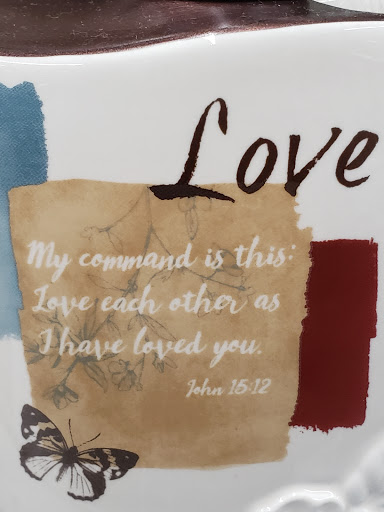 Love
My command is this:
Love each other as
I have loved you.
John 15:12